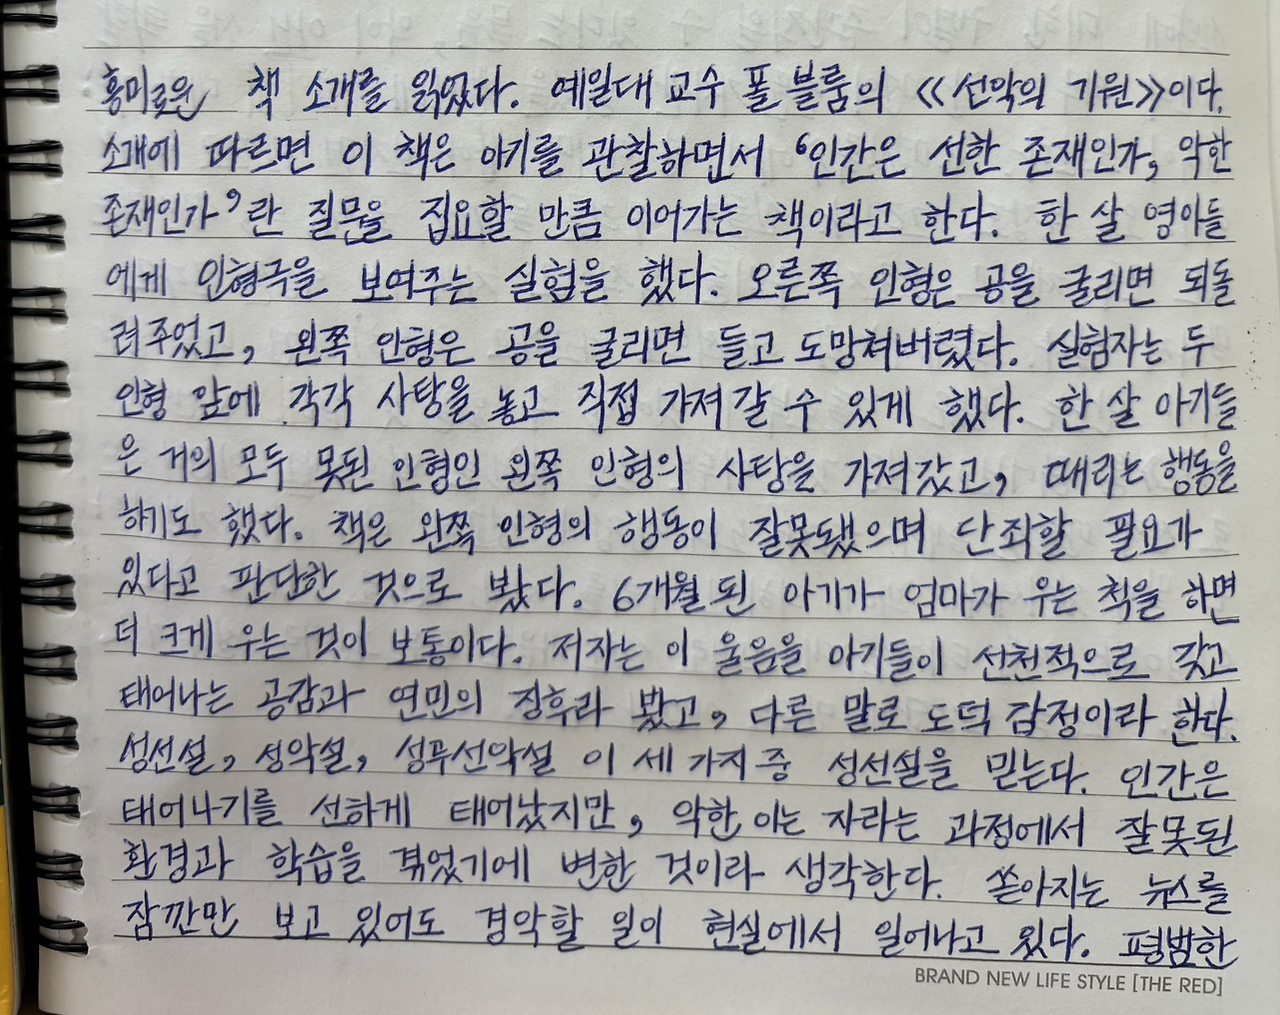 흥미로운 책 소개를 읽었다. 예일대 교수 폴 블룸의 《선악의 기원》이다.
소개에 따르면 이 책은 아기를 관찰하면서 '인간은 선한 존재인가, 악한
존재인가'란 질문을 집요할 만큼 이어가는 책이라고 한다. 한 살 영아들
에게 인형극을 보여주는 실험을 했다. 오른쪽 인형은 공을 굴리면 되돌
려주었고, 왼쪽 인형은 공을 굴리면 들고 도망쳐버렸다. 실험자는 두
인형 앞에 각각 사탕을 놓고 직접 가져갈 수 있게 했다. 한 살 아기들
은 거의 모두 못된 인형인 왼쪽 인형의 사탕을 가져갔고, 때리는 행동을
하기도 했다. 책은 왼쪽 인형의 행동이 잘못됐으며 단죄할 필요가
있다고 판단한 것으로 봤다. 6개월 된 아기가 엄마가 우는 척을 하면
더 크게 우는 것이 보통이다. 저자는 이 울음을 아기들이 선천적으로 갖고
태어나는 공감과 연민의 징후라 봤고, 다른 말로 도덕 감정이라 한다.
성선설, 성악설, 성무선악설 이 세 가지 중 성선설을 믿는다. 인간은
태어나기를 선하게 태어났지만, 악한 이는 자라는 과정에서 잘못된
환경과 학습을 겪었기에 변한 것이라 생각한다. 쏟아지는 뉴스를
잠깐만 보고 있어도 경악할 일이 현실에서 일어나고 있다. 평범한
BRAND NEW LIFE STYLE [THE RED]